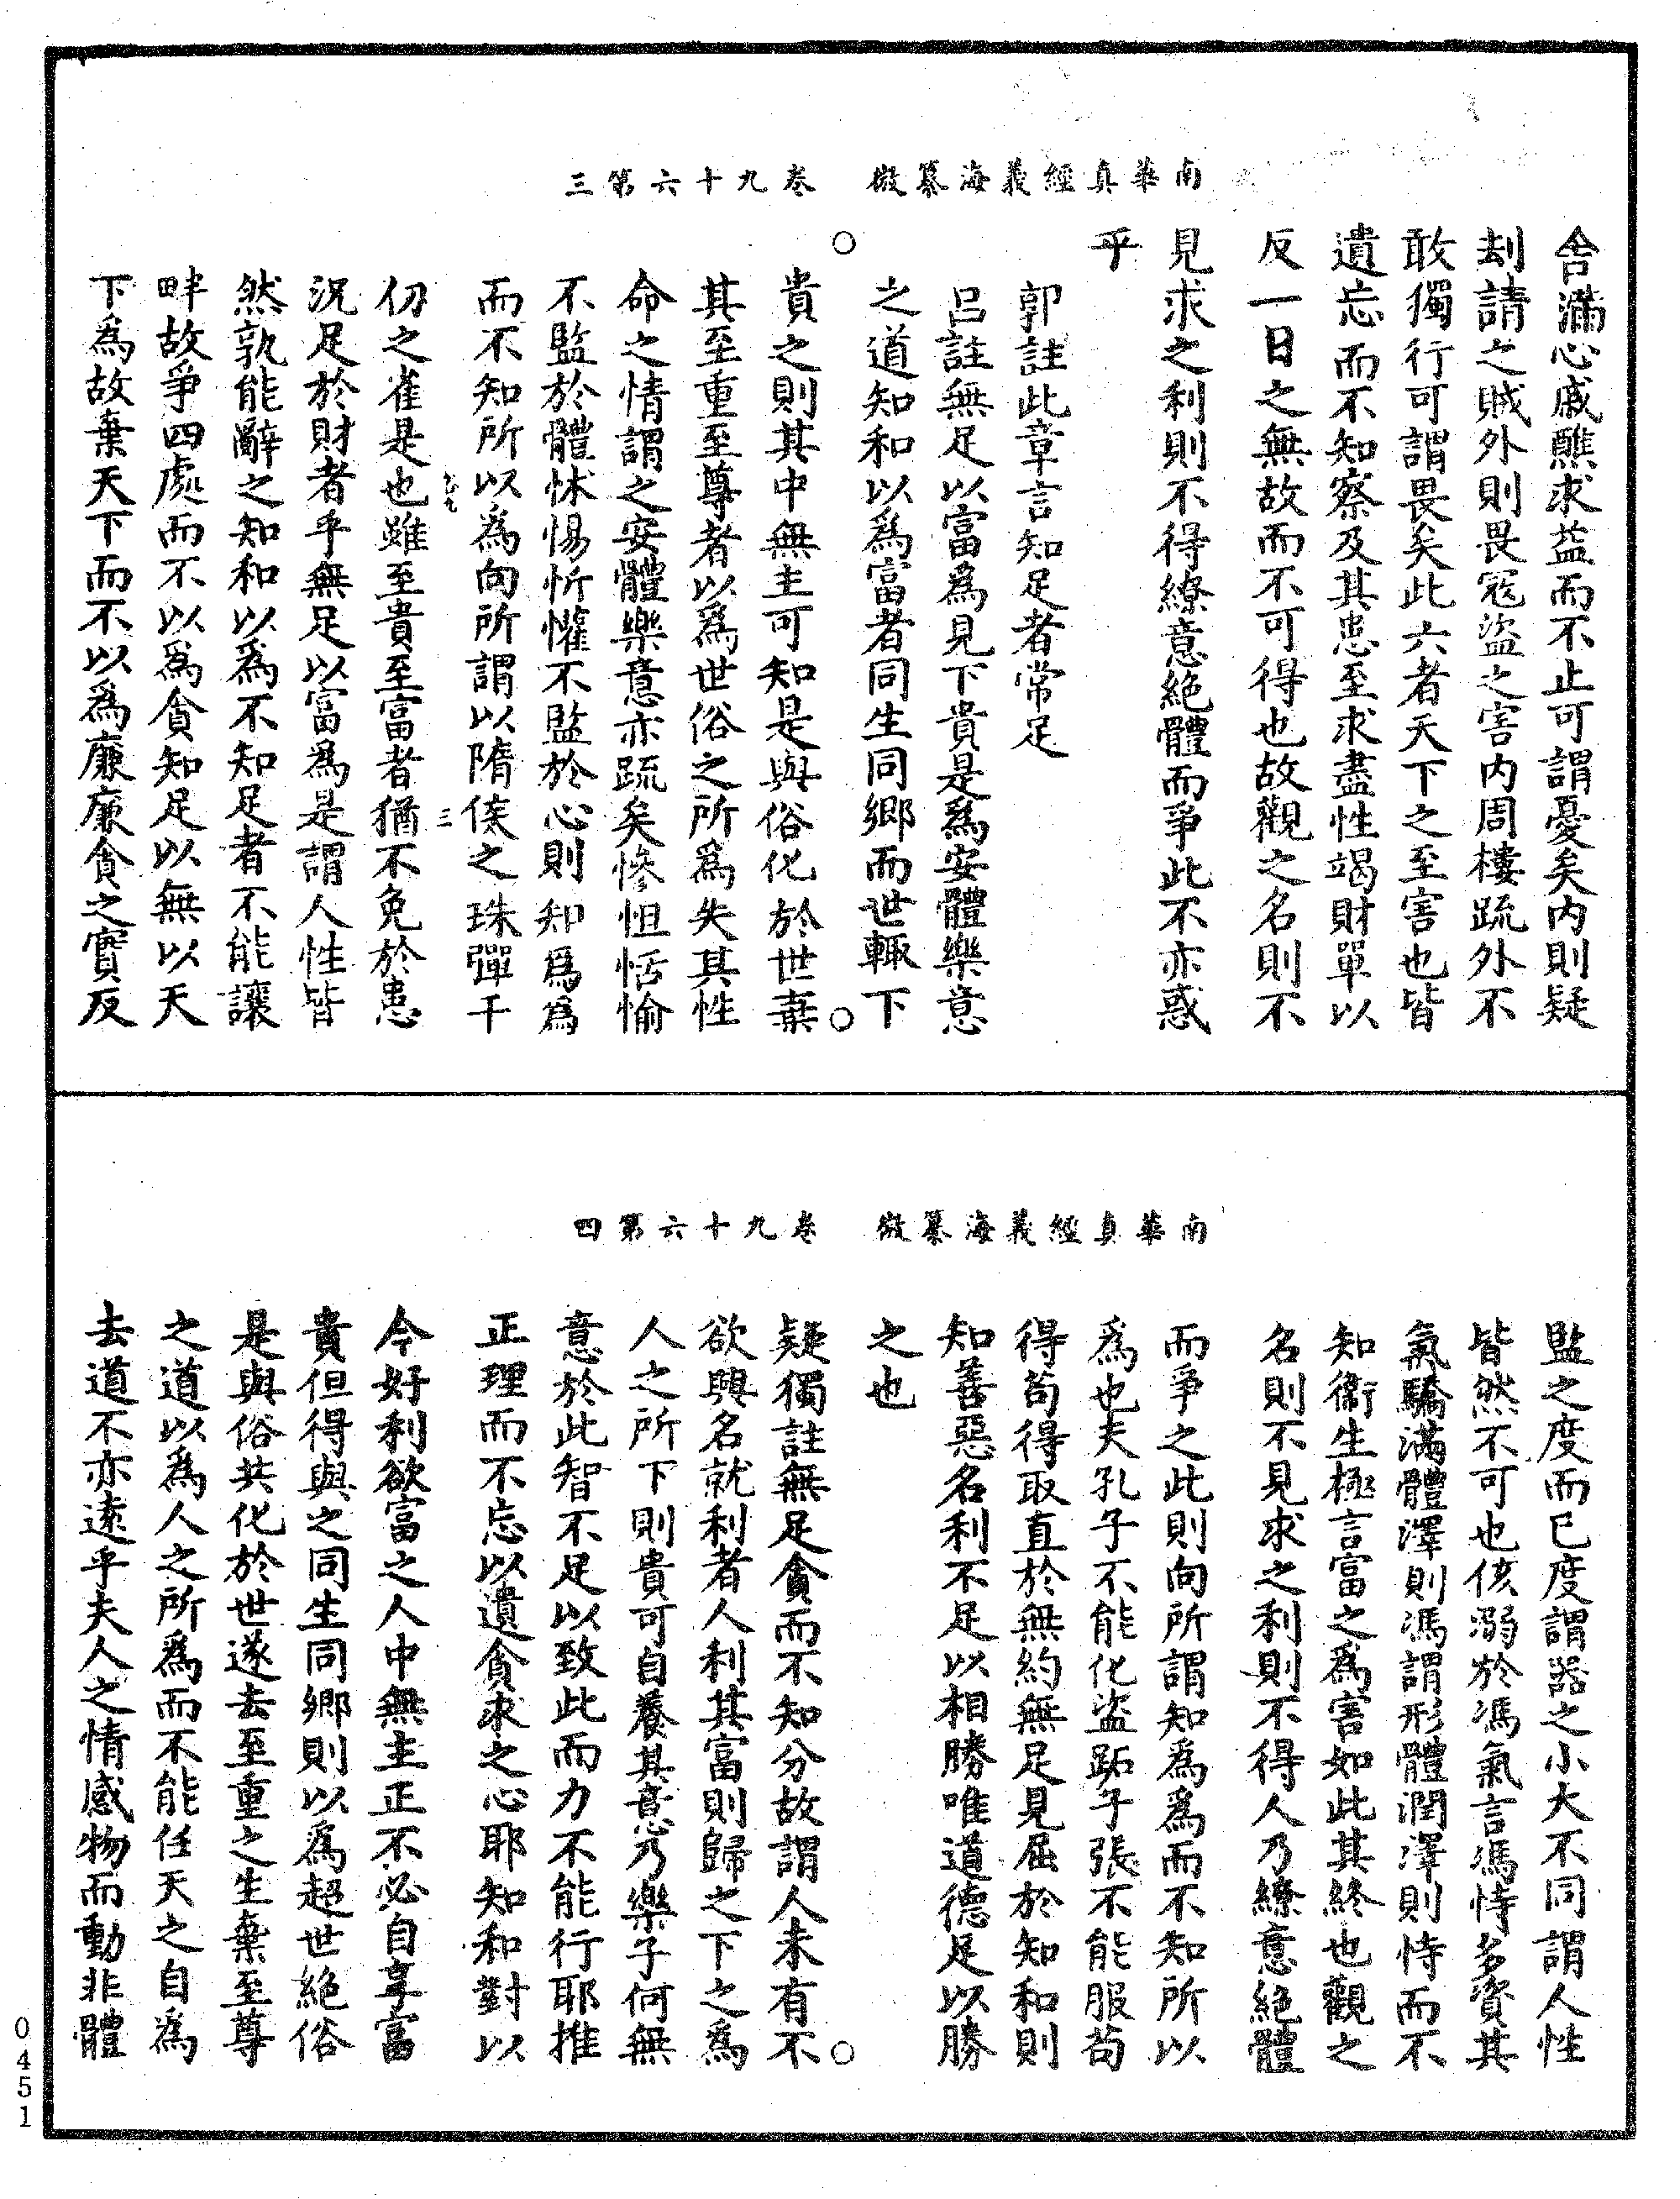 南華真經義海纂微　卷九十六第三
舍滿心戚醮求益而不止可謂憂矣內則疑
刦請之賊外則畏冦盜之害內周樓疏外不
敢獨行可謂畏矣此六者天下之至害也皆
遺忘而不知察及其患至求盡性竭財單以
反一日之無故而不可得也故觀之名則不
見求之利則不得繚意絕體而爭此不亦惑
乎
郭註此章言知足者常足
呂註無足以富為見下貴是為安體樂意
之道知和以為富者同生同鄉而世輙下
○
貴之則其中無主可知是與俗化於世棄○
其至重至尊者以為世俗之所為失其性
命之情謂之安體樂意亦疏矣慘怛恬愉
不監於體怵惕忻懽不監於心則知為為
而不知所以為向所謂以隋侯之珠彈千
仞之雀是也雖至貴至富者猶不免於患
三
況足於財者乎無足以富為是謂人性皆
然孰能辭之知和以為不知足者不能讓
畔故爭四處而不以為貪知足以無以天
下為故棄天下而不以為廉廉貪之實反
南華真經義海纂微　卷九十六第四
監之度而已度謂器之小大不同謂人性
皆然不可也侅溺於馮氣言馮恃多資其
氣驕滿體澤則馮謂形體潤澤則恃而不
知衞生極言富之為害如此其終也觀之
名則不見求之利則不得人乃繚意絕體
而爭之此則向所謂知為為而不知所以
為也夫孔子不能化盜跖子張不能服苟
得苟得取直於無約無足見屈於知和則
知善惡名利不足以相勝唯道德足以勝
之也
疑獨註無足貪而不知分故謂人未有不○
欲興名就利者人利其富則歸之下之為
人之所下則貴可自養其意乃樂子何無
意於此智不足以致此而力不能行耶推
正理而不忘以遺貪求之心耶知和對以
今好利欲富之人中無主正不必自享富
貴但得與之同生同鄉則以為超世絕俗
是與俗共化於世遂去至重之生棄至尊
之道以為人之所為而不能任天之自為
去道不亦遠乎夫人之情感物而動非體
0451